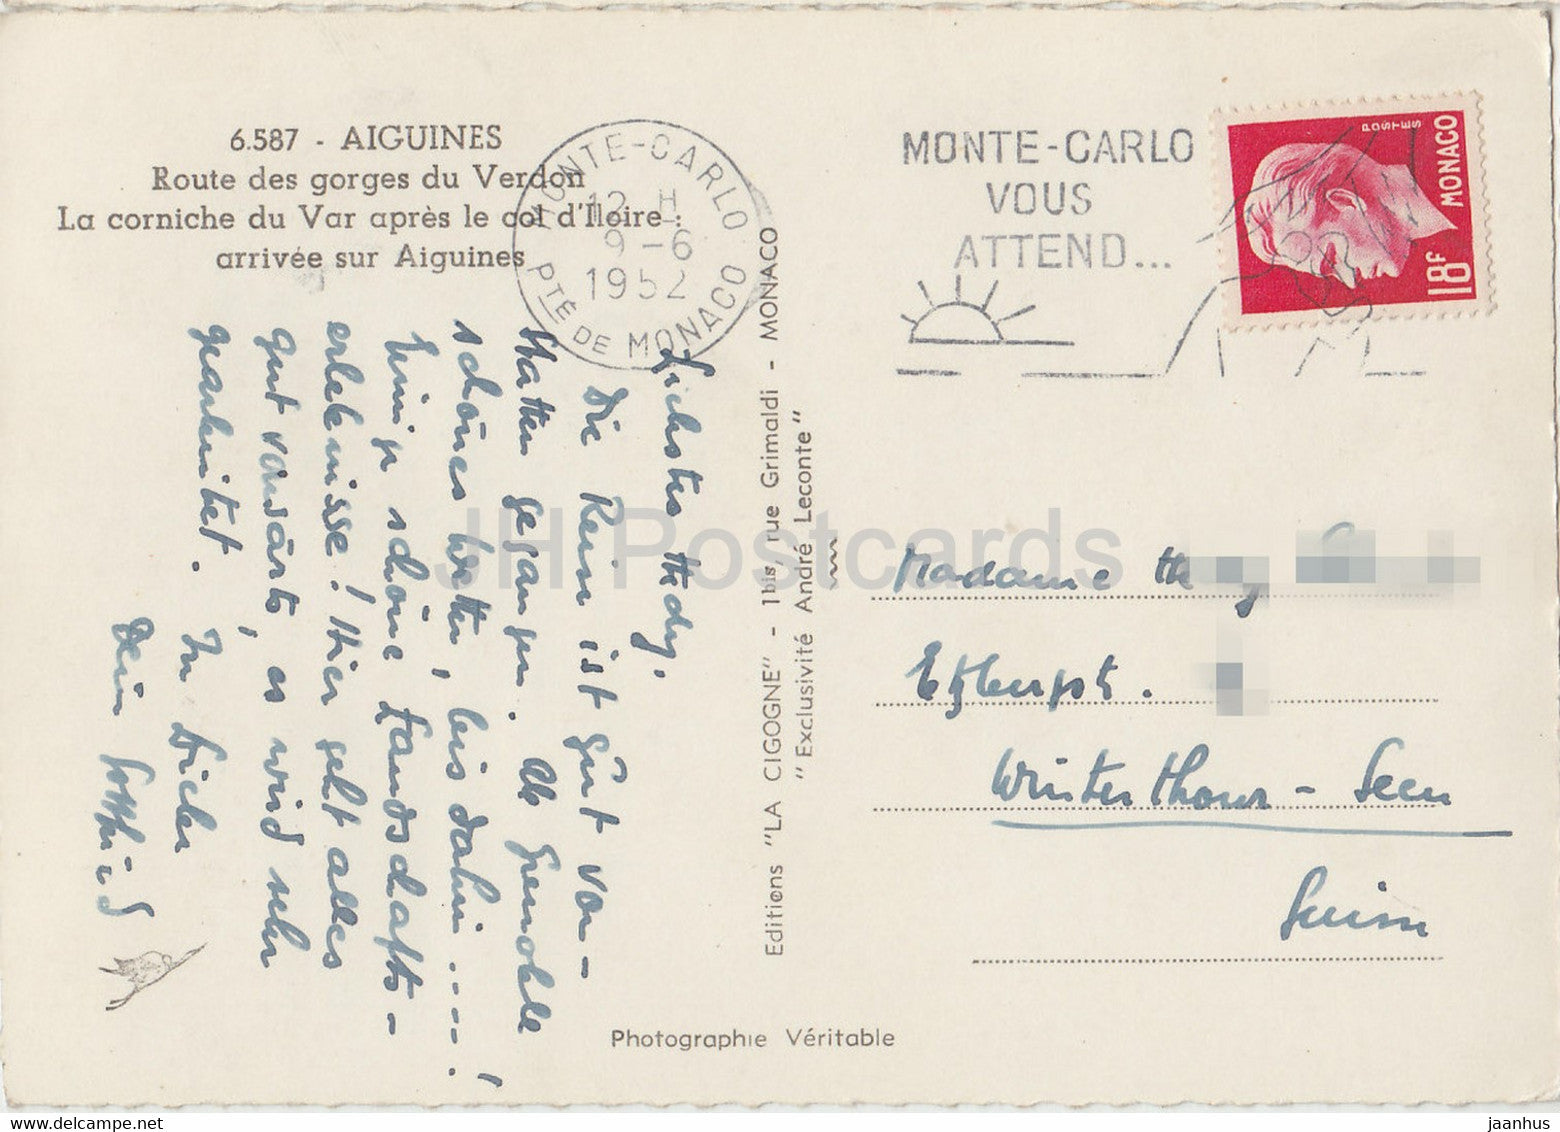 6.587 - AIGUINES
Route des gorges du Verdon
La corniche du Var après le col d'Illoire :
arrivée sur Aiguines
MONTE-CARLO
12 H
9 - 6
1952
PTÉ DE MONACO
MONTE-CARLO
VOUS
ATTEND...
POSTES
MONACO
18F
Liebster Hedy,
Die Reise ist gut von-
statten gegangen. Ab Grenoble
schönes Wetter, bis dahin ....!
Einige schöne Landschafts-
erlebnisse! Hier geht alles
gut vorwärts, es wird sehr
gearbeitet.
In Liebe
Dein
Editions "LA CIGOGNE" - 1bis, rue Grimaldi - MONACO
"Exclusivité André Leconte"
Madame
Winterthour - Seen
Suisse
Photographie Véritable
JH Postcards
jaanhus
www.delcampe.net